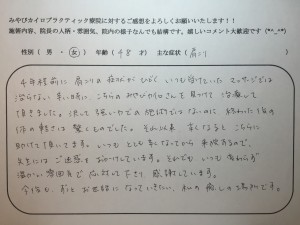 みやびカイロプラクティック療院に対するご感想をよろしくお願いいたします！！
施術内容、院長の人柄・雰囲気、院内の様子なんでも結構です。嬉しいコメント大歓迎です（*^_^*）
性別（ 男 ・ 女 ） 年齢（ 48 才 ） 主な症状（ 肩こり
4年程前に 肩こりの 痛みがひどく いつも受けていた マッサージでは
治らない 辛い時に、こちらの みやびカイロさんを 見つけて 治療して
頂きました。決して 強い力での 施術ではないのに 終わった後の
体の軽さは 驚くものでした。それ以来 辛くなると こちらに
助けて頂いてます。いつも とても辛くなってから 来院するので、
先生には ご迷惑を おかけしています。それでも いつも 変わらず
温かい 雰囲気で 応対して下さり、感謝しています。
今後も、ずっと お世話に なっていきたい、私の 癒しの 場所です。